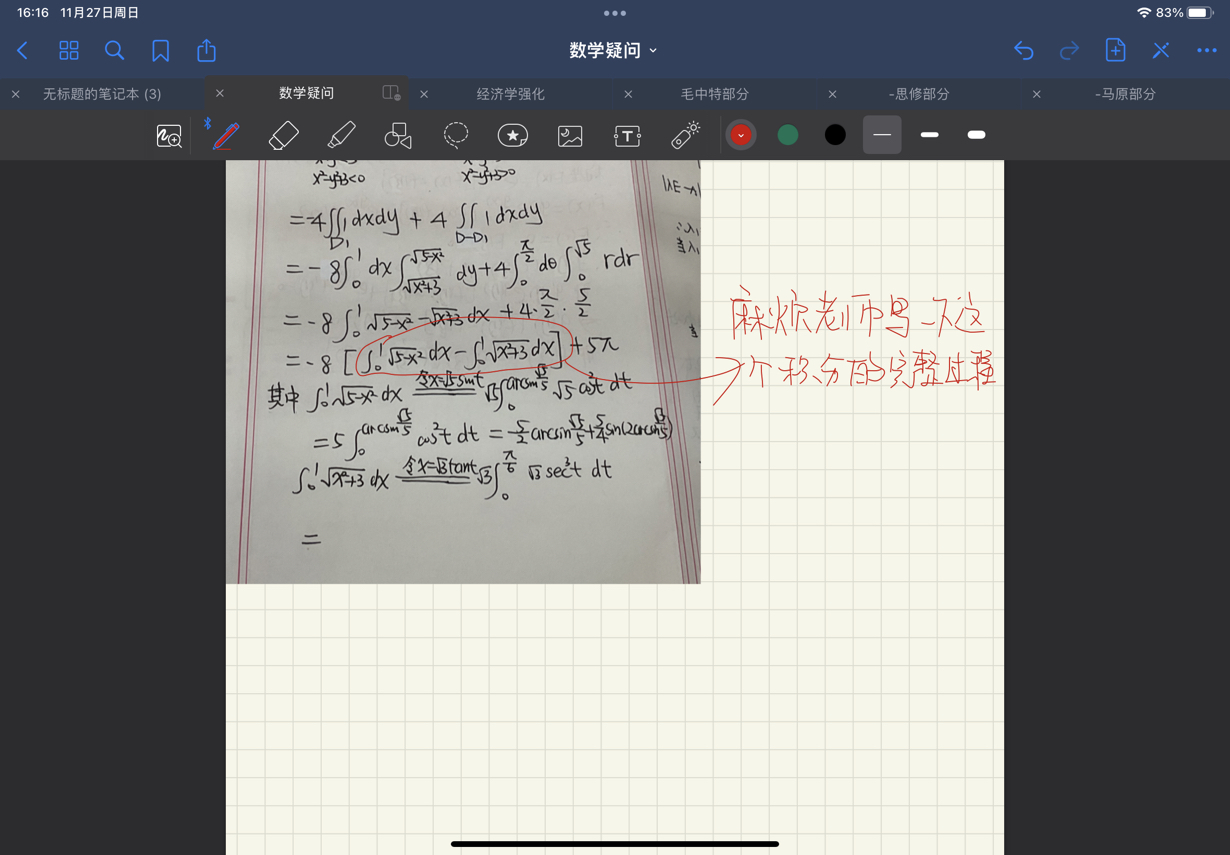 16:16 11月27日周日
83%
数学疑问
无标题的笔记本 (3)
数学疑问
经济学强化
毛中特部分
-思修部分
-马原部分
x²-y²+3<0 x²-y²+3>0
|λE-A|
=-4∬1dxdy + 4 ∬1dxdy
D₁ D-D₁
∴λ₁
当λ₁
=-8∫₀¹dx∫_{√(x²+3)}^{√(5-x²)} dy+4∫₀^{π/2}dθ∫₀^{√5} rdr
=-8∫₀¹√(5-x²)-√(x²+3)dx+4·π/2·5/2
=-8[∫₀¹√(5-x²)dx-∫₀¹√(x²+3)dx]+5π
其中∫₀¹√(5-x²)dx 令x=√5sint √5∫₀^{arcsin√5/5}√5cos²t dt
=5∫₀^{arcsin√5/5}cos²t dt=5/2arcsin√5/5+5/4sin(2arcsin√5/5)
∫₀¹√(x²+3)dx 令x=√3tant √3∫₀^{π/6}√3sec³t dt
=
麻烦老师写一下这
个积分的完整过程